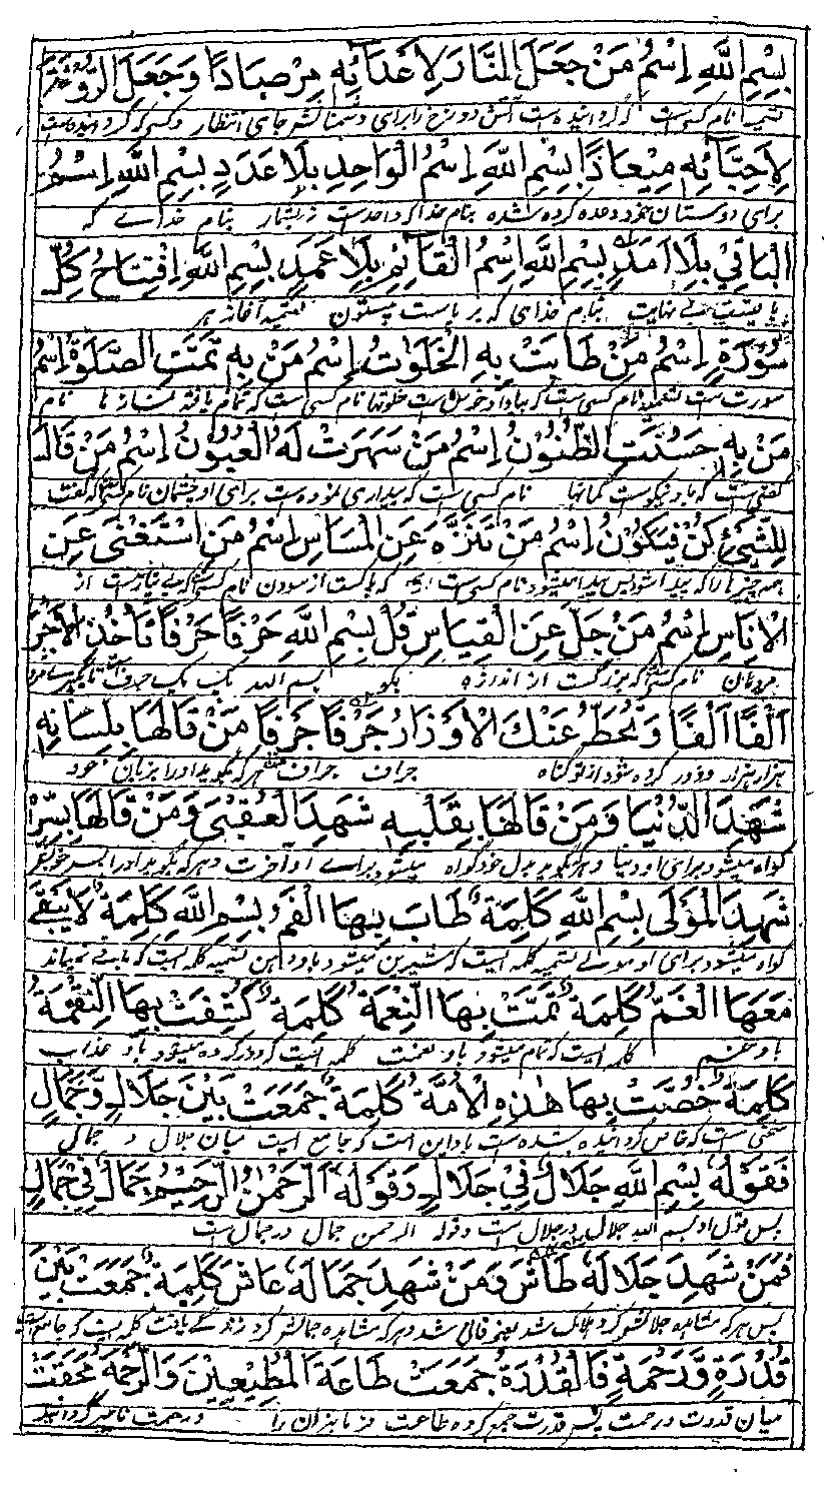 بِسْمِ اللّٰهِ اِسْمُ مَنْ جَعَلَ النَّارَ لِاَعْدَآئِهٖ مِرْصَادًا وَجَعَلَ الرُّؤْيَةَ
تسمیه نام کسی است گردانیده است آتش دوزخ را برای دشمنانش جای انتظار و کسی که گردانیده است
لِاَحِبَّآئِهٖ مِيْعَادًا بِسْمِ اللّٰهِ اِسْمُ الْوَاحِدِ بِلَا عَدَدٍ بِسْمِ اللّٰهِ اِسْمُ
برای دوستان خود وعده کرده شده بنام خدا که واحد است بنام خدای که
الْبَاقِيْ بِلَا اَمَدٍ بِسْمِ اللّٰهِ اِسْمُ الْقَآئِمِ بِلَا عَمَدٍ بِسْمِ اللّٰهِ اِفْتِتَاحُ كُلِّ
بے نهایت بنام خدای که بر پا است بے ستون تسمیه آغاز هر
سُوْرَةٍ اِسْمُ مَنْ طَابَتْ بِهِ الْخَلَوٰتُ اِسْمُ مَنْ بِهٖ تَمَّتِ الصَّلٰوةُ اِسْمُ
سورت است تسمیه نام کسی است که خوش است خلوتها نام کسی است که تمام یافته نماز ها نام
مَنْ بِهٖ حَسُنَتِ الظُّنُوْنُ اِسْمُ مَنْ سَهِرَتْ لَهُ الْعُيُوْنُ اِسْمُ مَنْ قَالَ
که باو نیکو است گمانها نام کسی است که بیداری نموده است برای او چشمان نام کسی است که گفت
لِلشَّيْءِ كُنْ فَيَكُوْنُ اِسْمُ مَنْ تَنَزَّهَ عَنِ الْمَسَاسِ اِسْمُ مَنِ اسْتَغْنٰى عَنِ
همه چیز را که پیدا شو پس پیدا میشود نام کسی است که پاک است از سودن نام کسی است که بے نیاز است از
الْاُنَاسِ اِسْمُ مَنْ جَلَّ عَنِ الْقِيَاسِ قُلْ بِسْمِ اللّٰهِ حَرْفًا حَرْفًا تَاْخُذِ الْاَجْرَ
مردمان نام کسی است که بزرگست از اندازه بگو بسم الله یک یک حرف تا بگیری مزد
اَلْفًا اَلْفًا وَّ يُحَطُّ عَنْكَ الْاَوْزَارُ جَرْفًا جَرْفًا مَنْ قَالَهَا بِلِسَانِهٖ
هزار هزار و دور کرده شود از تو گناه جراف جراف هر که بگوید او را بزبان خود
شَهِدَ الدُّنْيَا وَمَنْ قَالَهَا بِقَلْبِهٖ شَهِدَ الْعُقْبٰى وَمَنْ قَالَهَا بِسِرِّهٖ
گواه میشود برای او دنیا و هر که بگوید بدل خود گواه میشود برای او آخرت و هر که بگوید او را بسر خود
شَهِدَ الْمَوْلٰى بِسْمِ اللّٰهِ كَلِمَةٌ طَابَ بِهَا الْفَمُ بِسْمِ اللّٰهِ كَلِمَةٌ لَا يَبْقٰى
گواه میشود برای او مولے تسمیه کلمه است که شیرین میشود باو دهن تسمیه کلمه است که باقے نمیماند
مَعَهَا الْغَمُّ كَلِمَةٌ تَمَّتْ بِهَا النِّعْمَةُ كَلِمَةٌ كُشِفَتْ بِهَا النِّقْمَةُ
باو غم کلمه است که تمام میشود باو نعمت کلمه است که دور کرده میشود باو عذاب
كَلِمَةٌ خُصَّتْ بِهَا هٰذِهِ الْاُمَّةُ كَلِمَةٌ جَمَعَتْ بَيْنَ جَلَالٍ وَّجَمَالٍ
است که خاص گردانیده شده است باو این است که جامع است میان جلال و جمال
فَقَوْلُهٗ بِسْمِ اللّٰهِ جَلَالٌ فِيْ جَلَالٍ وَقَوْلُهٗ الرَّحْمٰنُ الرَّحِيْمُ جَمَالٌ فِيْ جَمَالٍ
پس قول او بسم الله جلال در جلال است و قوله الرحمن جمال در جمال است
فَمَنْ شَهِدَ جَلَالَهٗ طَاشَ وَمَنْ شَهِدَ جَمَالَهٗ عَاشَ كَلِمَةٌ جَمَعَتْ بَيْنَ
پس هر که مشاهده جلالش کرد هلاک شد یعنی فانی شد و هر که مشاهده جمالش کرد زندگی یافت کلمه است که جامع است
قُدْرَةٍ وَّرَحْمَةٍ فَالْقُدْرَةُ جَمَعَتْ طَاعَةَ الْمُطِيْعِيْنَ وَالرَّحْمَةُ مَحَقَتْ
میان قدرت و رحمت پس قدرت جمع کرده طاعت فرمانبران را و رحمت ناچیز گردانید